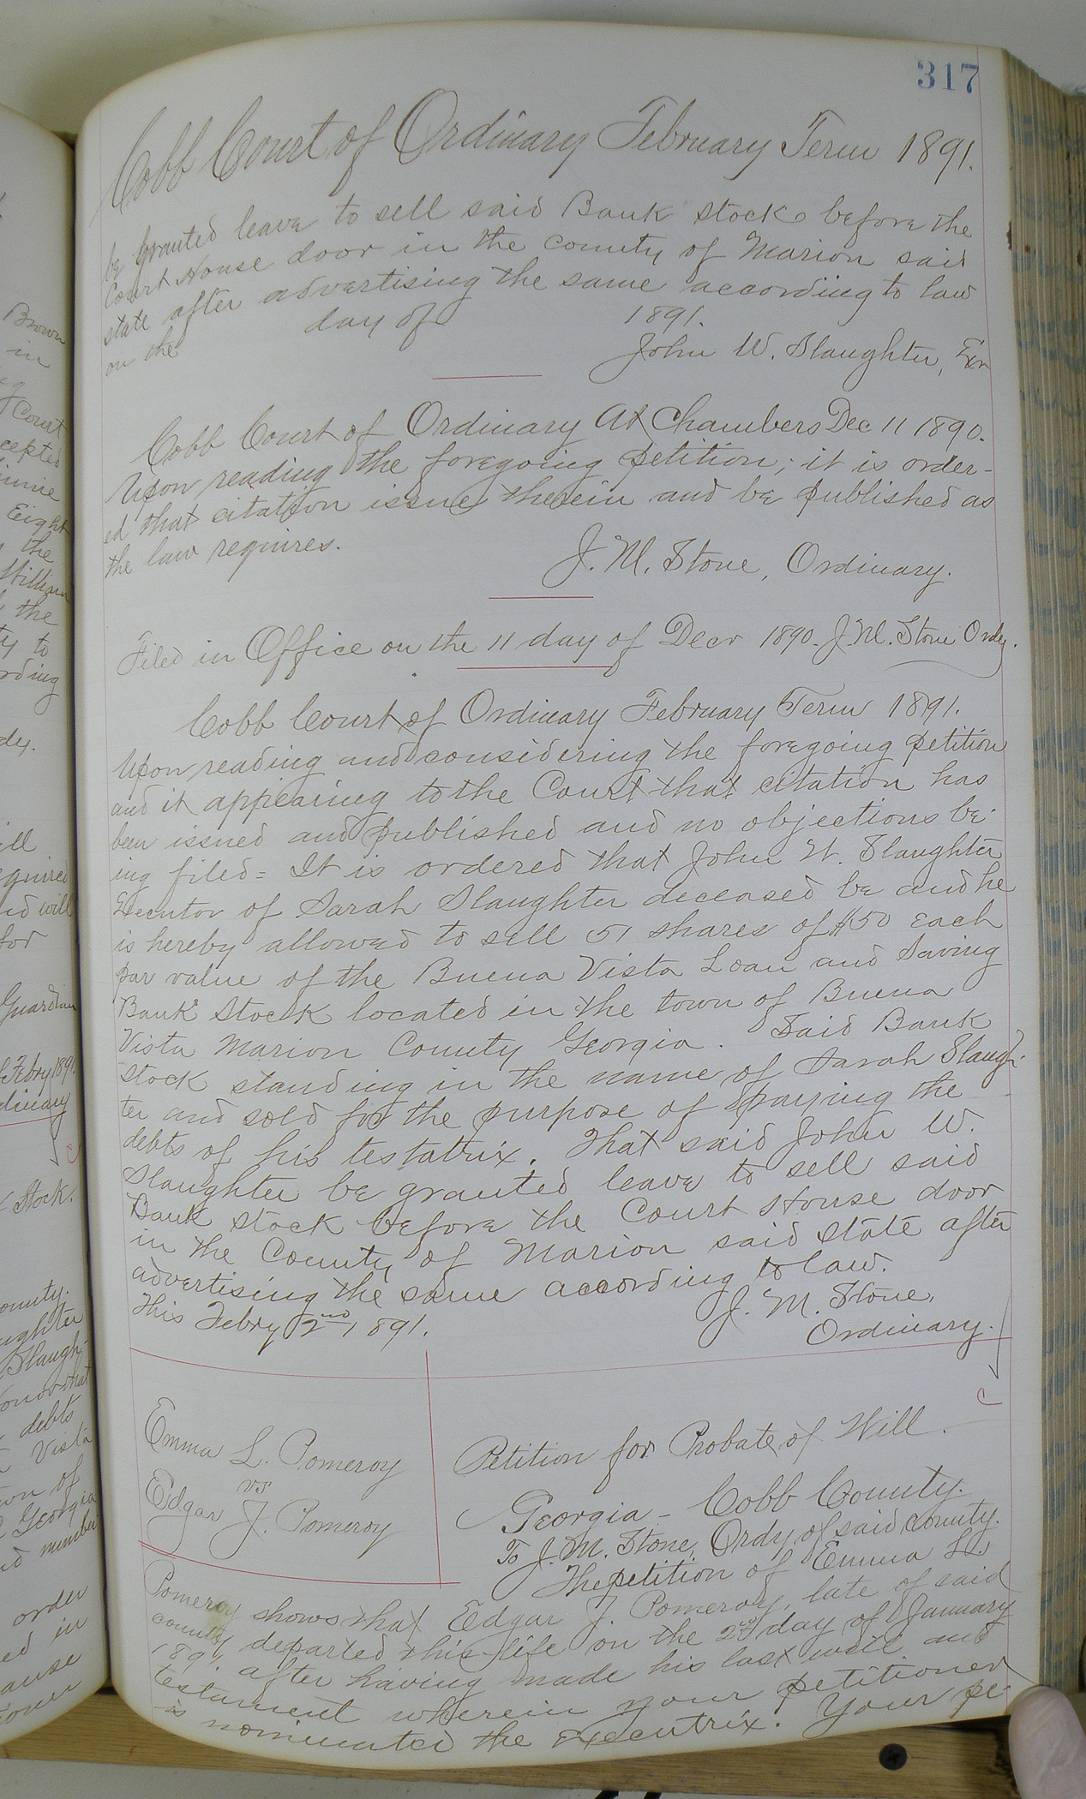 317
Cobb Court of Ordinary February Term 1891.
be granted leave to sell said Bank stock before the
Court House door in the county of Marion said
state after advertising the same according to law
on the day of 1891.
John W. Slaughter, Exr
Cobb Court of Ordinary At Chambers Dec 11 1890.
Upon reading the foregoing petition; it is order-
ed that citation issue therein and be published as
the law requires.
J. M. Stone, Ordinary.
Filed in Office on the 11 day of Decr 1890. J. M. Stone Ordy.
Cobb Court of Ordinary February Term 1891.
Upon reading and considering the foregoing petition
and it appearing to the Court that citation has
been issued and published and no objections be-
ing filed = It is ordered that John W. Slaughter
Executor of Sarah Slaughter deceased be and he
is hereby allowed to sell 51 shares of $50 each
par value of the Buena Vista Loan and Saving
Bank Stock located in the town of Buena
Vista Marion County Georgia. Said Bank
stock standing in the name of Sarah Slaugh-
ter and sold for the purpose of paying the
debts of his testatrix. That said John W.
Slaughter be granted leave to sell said
Bank stock before the Court House door
in the County of Marion said state after
advertising the same according to law.
This Febry 2nd 1891.
J. M. Stone,
Ordinary.
Emma L. Pomeroy
vs
Edgar J. Pomeroy
Petition for Probate of Will.
Georgia - Cobb County.
To J. M. Stone, Ordy of said county.
The petition of Emma L.
Pomeroy shows that Edgar J. Pomeroy, late of said
county departed this life on the 2nd day of January
after having made his last will and
testament wherein your petitioner
is nominated the executrix. Your pe-
Brown
in
Court
cepted
Eight
the
the
to
rding
dy.
quired
will
for
Guardian
Febry 1891
dinary
Stock.
ounty.
aughter
Slaugh-
debts
Vista
own of
Georgia
number
order
ed in
ause